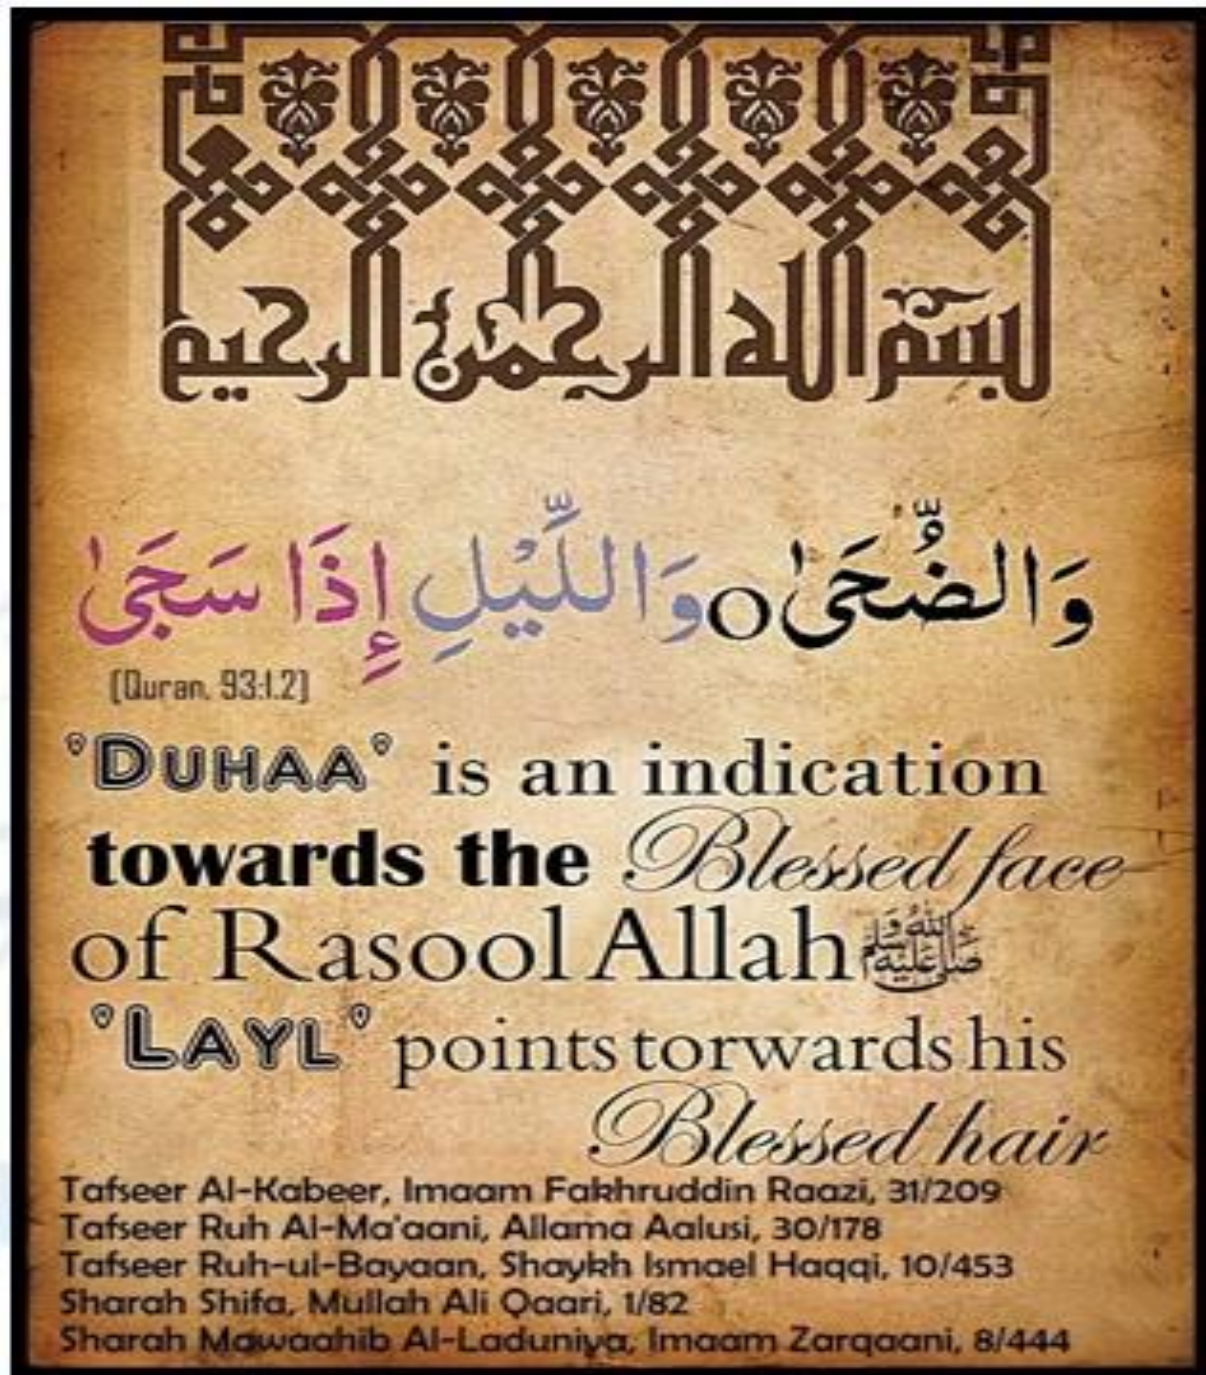 بسم الله الرحمن الرحيم
وَالضُّحَىٰ o وَاللَّيْلِ إِذَا سَجَىٰ
(Quran, 93:1,2)
"DUHAA" is an indication
towards the Blessed face
of Rasool Allah ﷺ
"LAYL" points torwards his
Blessed hair
Tafseer Al-Kabeer, Imaam Fakhruddin Raazi, 31/209
Tafseer Ruh Al-Ma'aani, Allama Aalusi, 30/178
Tafseer Ruh-ul-Bayaan, Shaykh Ismael Haqqi, 10/453
Sharah Shifa, Mullah Ali Qaari, 1/82
Sharah Mawaahib Al-Laduniya, Imaam Zarqaani, 8/444